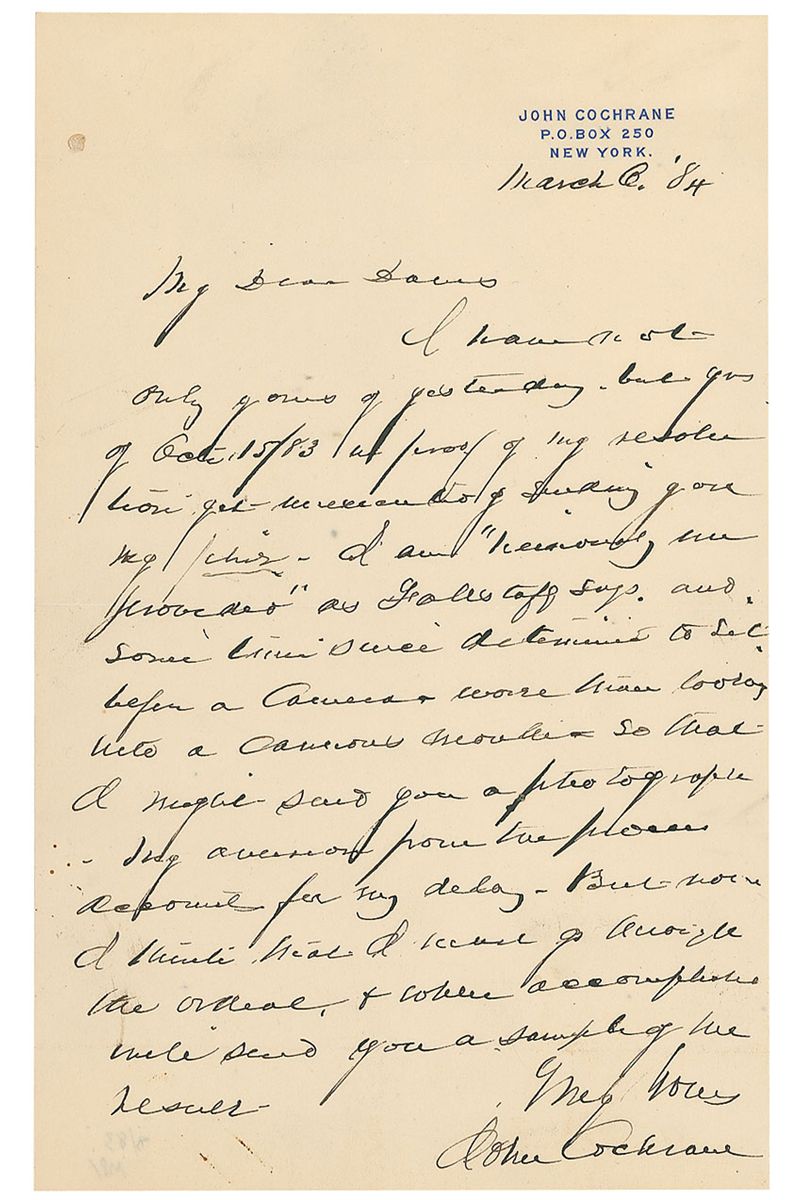 JOHN COCHRANE
P.O. BOX 250
NEW YORK.
March 6. '84
My Dear Davis
I have not
only yours of yesterday. but yrs
of Oct. 15/83 in proof of my resolu
tion yet unexecuted of sending you
my phiz - I am "heinously un
provided" as Falstaff says. and
some time since determined to sit
before a Camera - worse than looking
into a Cannons mouth - so that
I might send you a photograph
- My aversion from the process
accounts for my delay - But now
I think that I must go through
the ordeal, & when accomplished
will send you a sample of the
result -
Truly Yours
John Cochrane